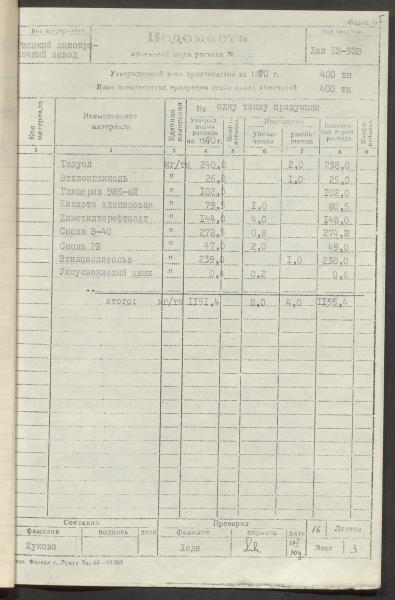 Форма № 5
Код предприятия
Код изделия
Рижский лакокра-
сочный завод
Ведомость
изменений норм расхода №
Лак ПЭ-933
Утвержденный план производства на 1970 г. 400 тн
План производства продукции после ввода изменений 400 тн
Код материала
Наименование материала
Единица измерения
На одну тонну продукции
Изменение
увели-
чение
умень-
шение
1 2 3 4 5 6 7 8 9
Толуол кг/тн 240,0 2,0 238,0
Этиленгликоль " 26,0 1,0 25,0
Глицерин 98%-ый " 102,0 102,0
Кислота адипиновая " 79,5 1,0 80,5
Диметилтерефталат " 144,0 4,0 148,0
Смола В-40 " 0,8
Смола РБ " 47,0 2,0 49,0
Этилцеллозольв " 239,0 1,0 238,0
Уксуснокислый цинк " 0,4 0,2 0,6
итого: кг/тн 1151,4 8,0 4,0 1155,4
Составил
Проверил
16 Листов
фамилия подпись дата фамилия подпись дата
Жукова
Лист 3